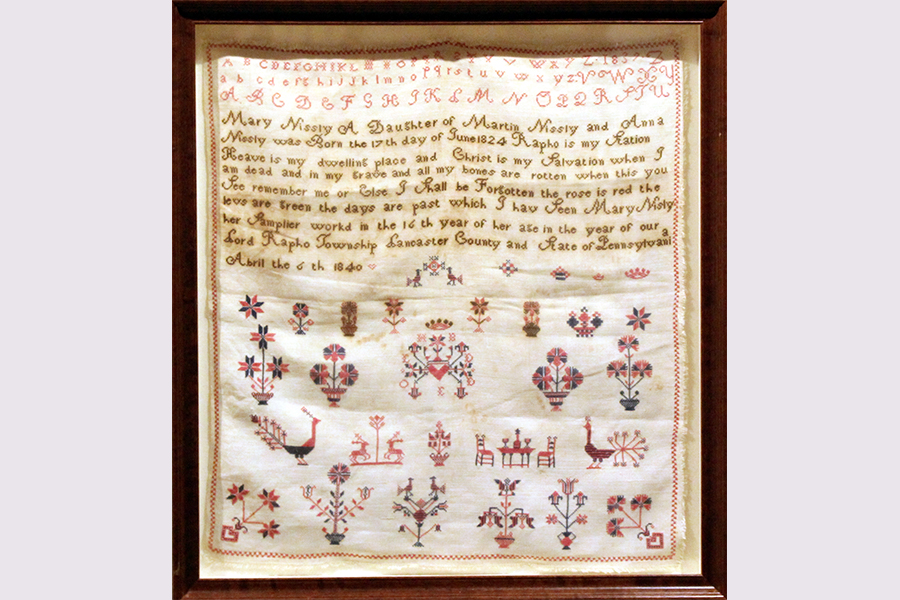 A B C D E F G H I K L M N O P Q R S T V U W X Y Z 1837 Z
a b c d e f g h i j k l m n o p q r s t u v w x y z V W X Y
A B C D E F G H I K L M N O P Q R S T U
Mary Nissly A Daughter of Martin Nissly and Anna
Nissly was Born the 17th day of June 1824 Rapho is my Station
Heave is my dwelling place and Christ is my Salvation when I
am dead and in my grave and all my bones are rotten when this you
See remember me or Else I Shall be Forgotten the rose is red the
levs are green the days are past which I hav Seen Mary Nisly
her Samplier workd in the 16 th year of her age in the year of our
Lord Rapho Township Lancaster County and State of Pennsylvani a
Abril the 6 th 1840